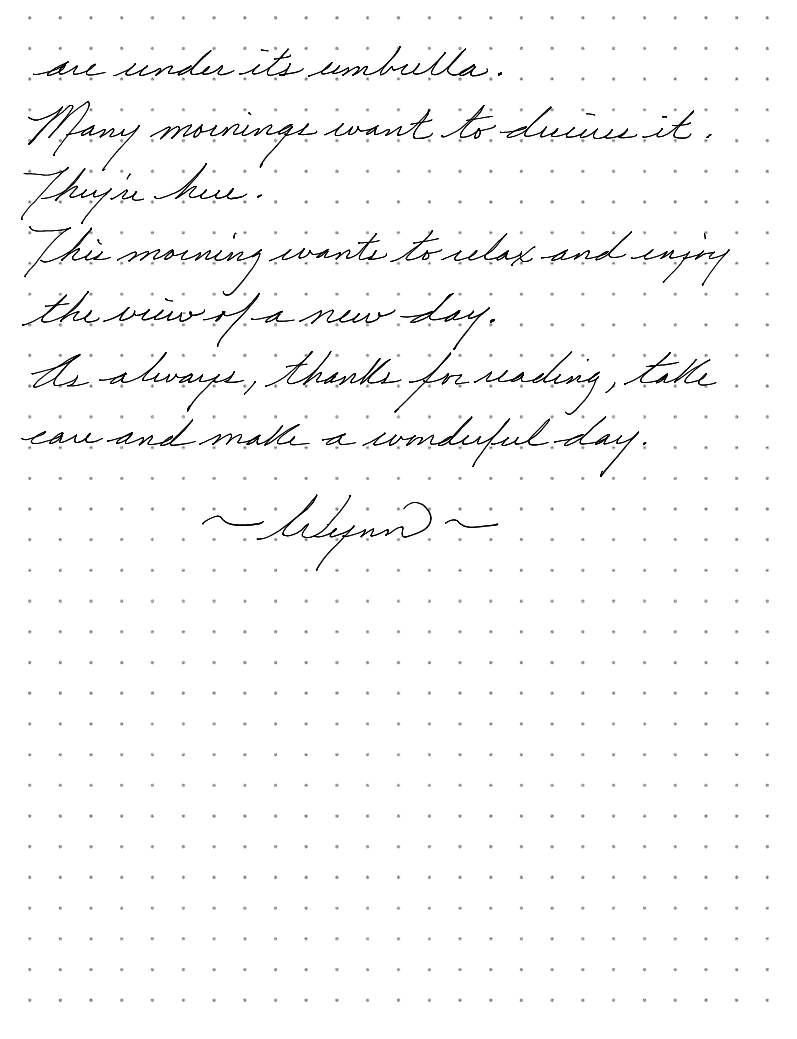 are under its umbrella.
Many mornings want to discuss it.
They're here.
This morning wants to relax and enjoy
the view of a new day.
As always, thanks for reading, take
care and make a wonderful day.
~ Wynn ~